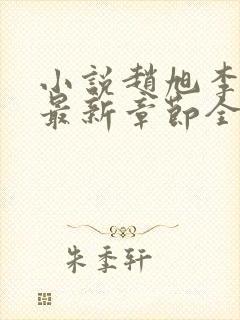 小説趙旭李
最新章節全
朱季軒